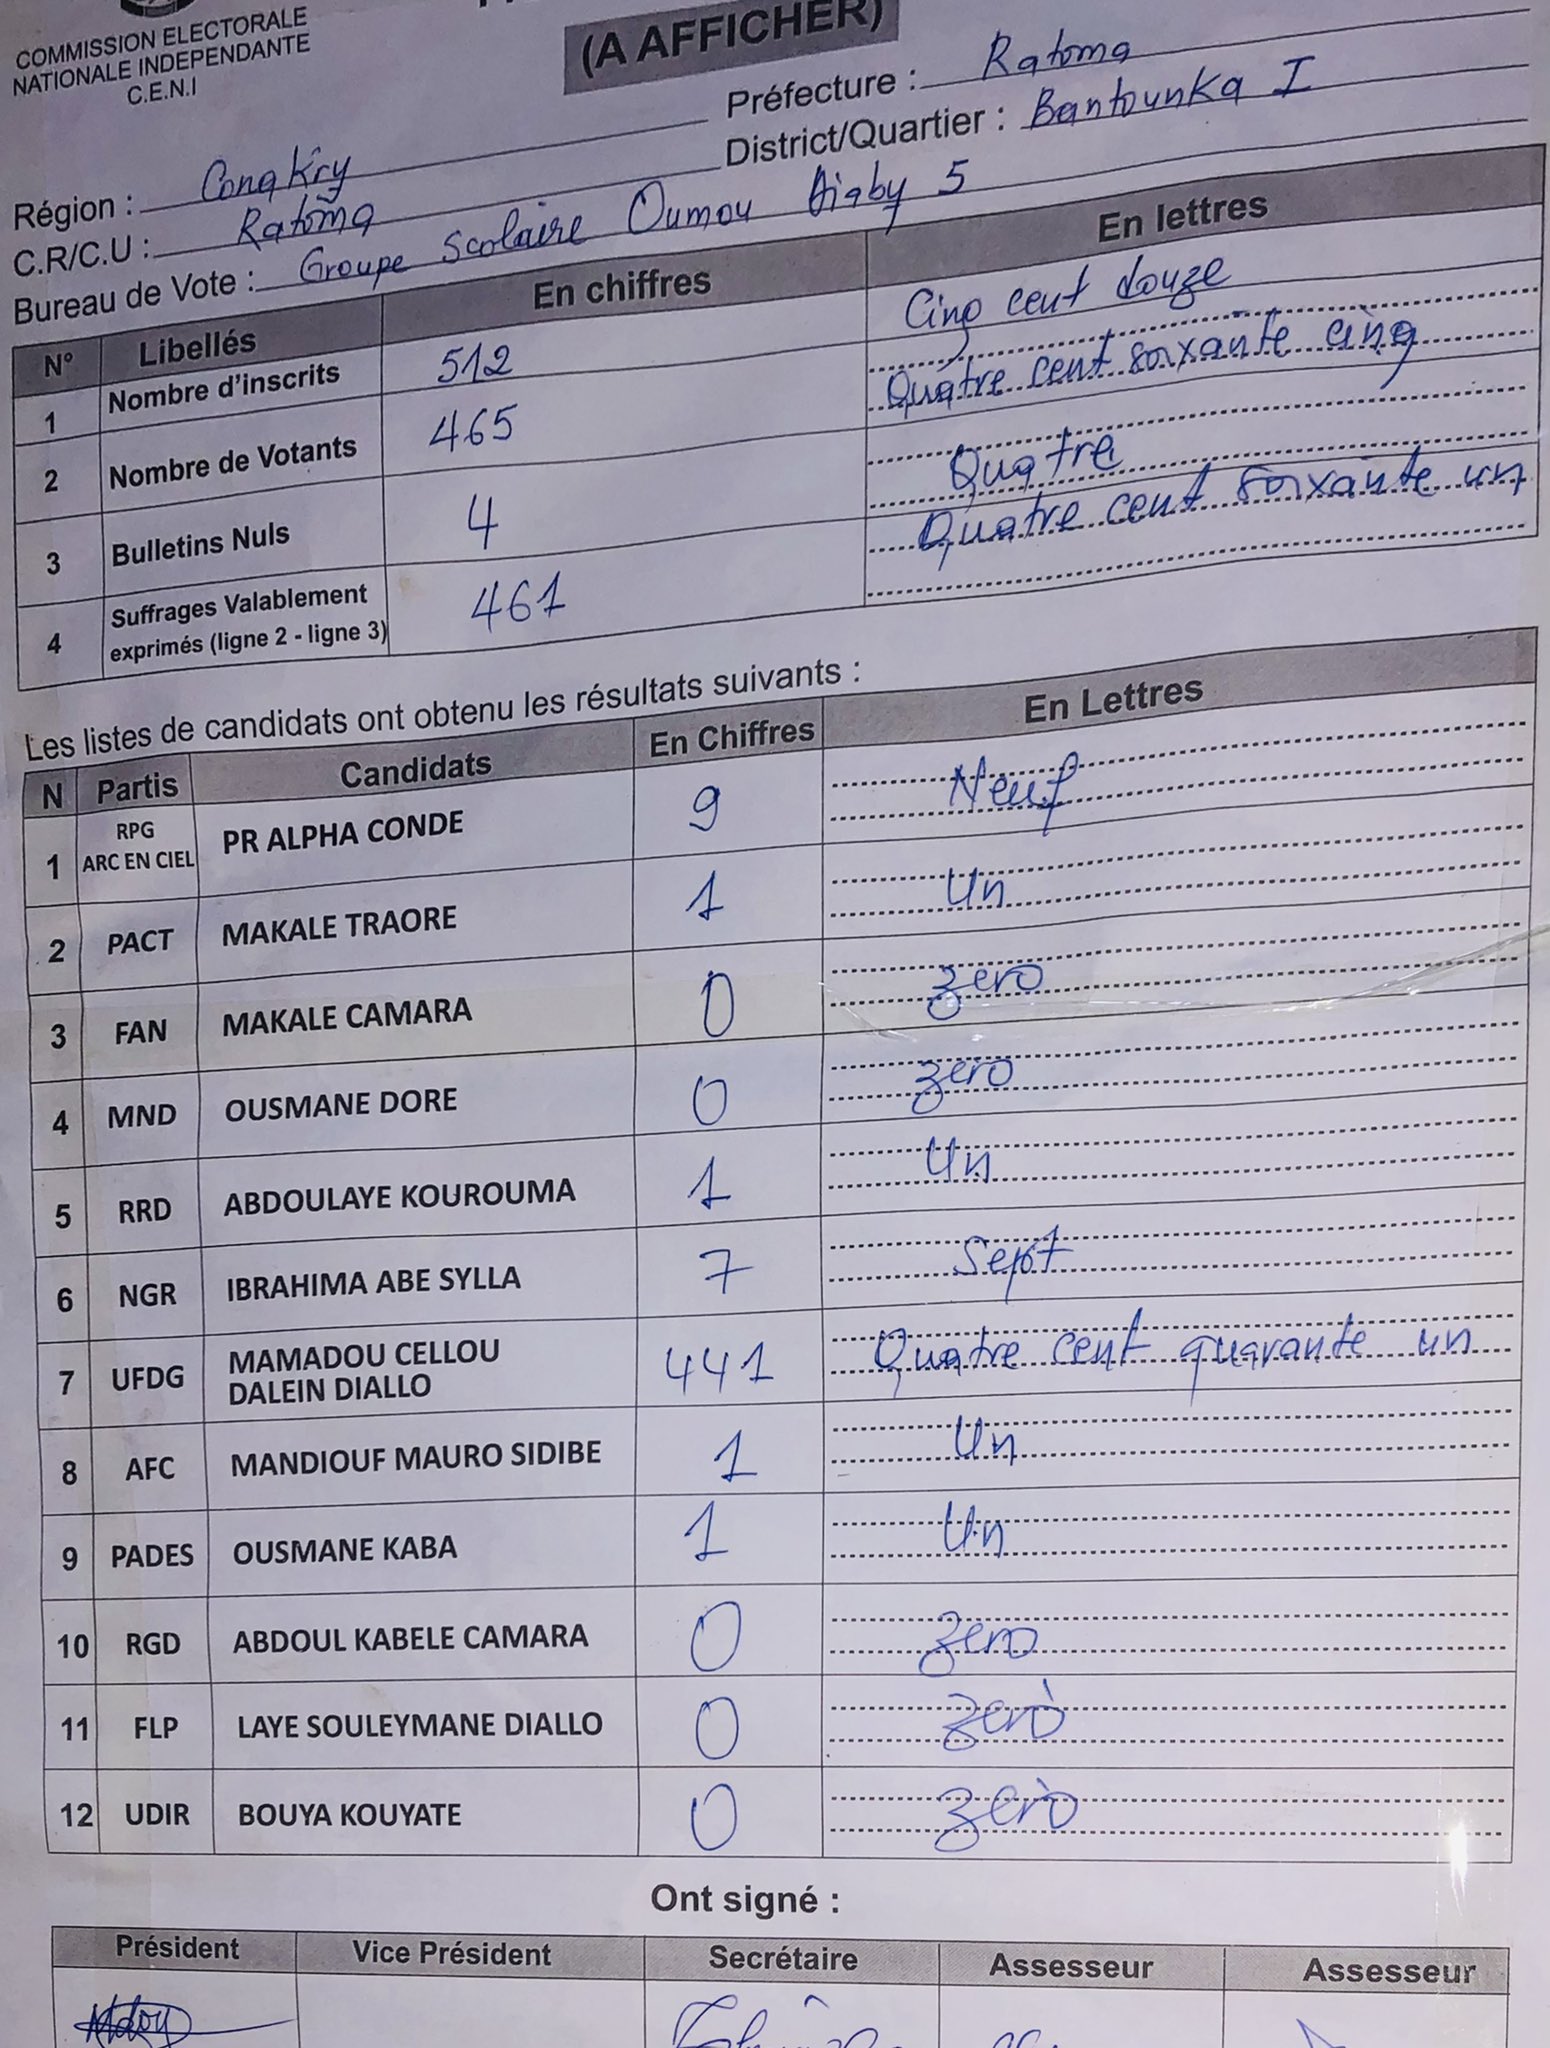 COMMISSION ELECTORALE
NATIONALE INDEPENDANTE
C.E.N.I
(A AFFICHER)
Préfecture : Ratoma
District/Quartier : Bantounka I
Région : Conakry
C.R/C.U : Ratoma
Bureau de Vote : Groupe Scolaire Oumou Diaby 5
N° Libellés En chiffres En lettres
1 Nombre d'inscrits 512 Cinq cent douze
2 Nombre de Votants 465 Quatre cent soixante cinq
3 Bulletins Nuls 4 Quatre
4 Suffrages Valablement exprimés (ligne 2 - ligne 3) 461 Quatre cent soixante un
Les listes de candidats ont obtenu les résultats suivants :
N Partis Candidats En Chiffres En Lettres
1 RPG ARC EN CIEL PR ALPHA CONDE 9 Neuf
2 PACT MAKALE TRAORE 1 Un
3 FAN MAKALE CAMARA 0 zero
4 MND OUSMANE DORE 0 zero
5 RRD ABDOULAYE KOUROUMA 1 Un
6 NGR IBRAHIMA ABE SYLLA 7 Sept
7 UFDG MAMADOU CELLOU DALEIN DIALLO 441 Quatre cent quarante un
8 AFC MANDIOUF MAURO SIDIBE 1 Un
9 PADES OUSMANE KABA 1 Un
10 RGD ABDOUL KABELE CAMARA 0 zero
11 FLP LAYE SOULEYMANE DIALLO 0 zerò
12 UDIR BOUYA KOUYATE 0 zerò
Ont signé :
Président Vice Président Secrétaire Assesseur Assesseur